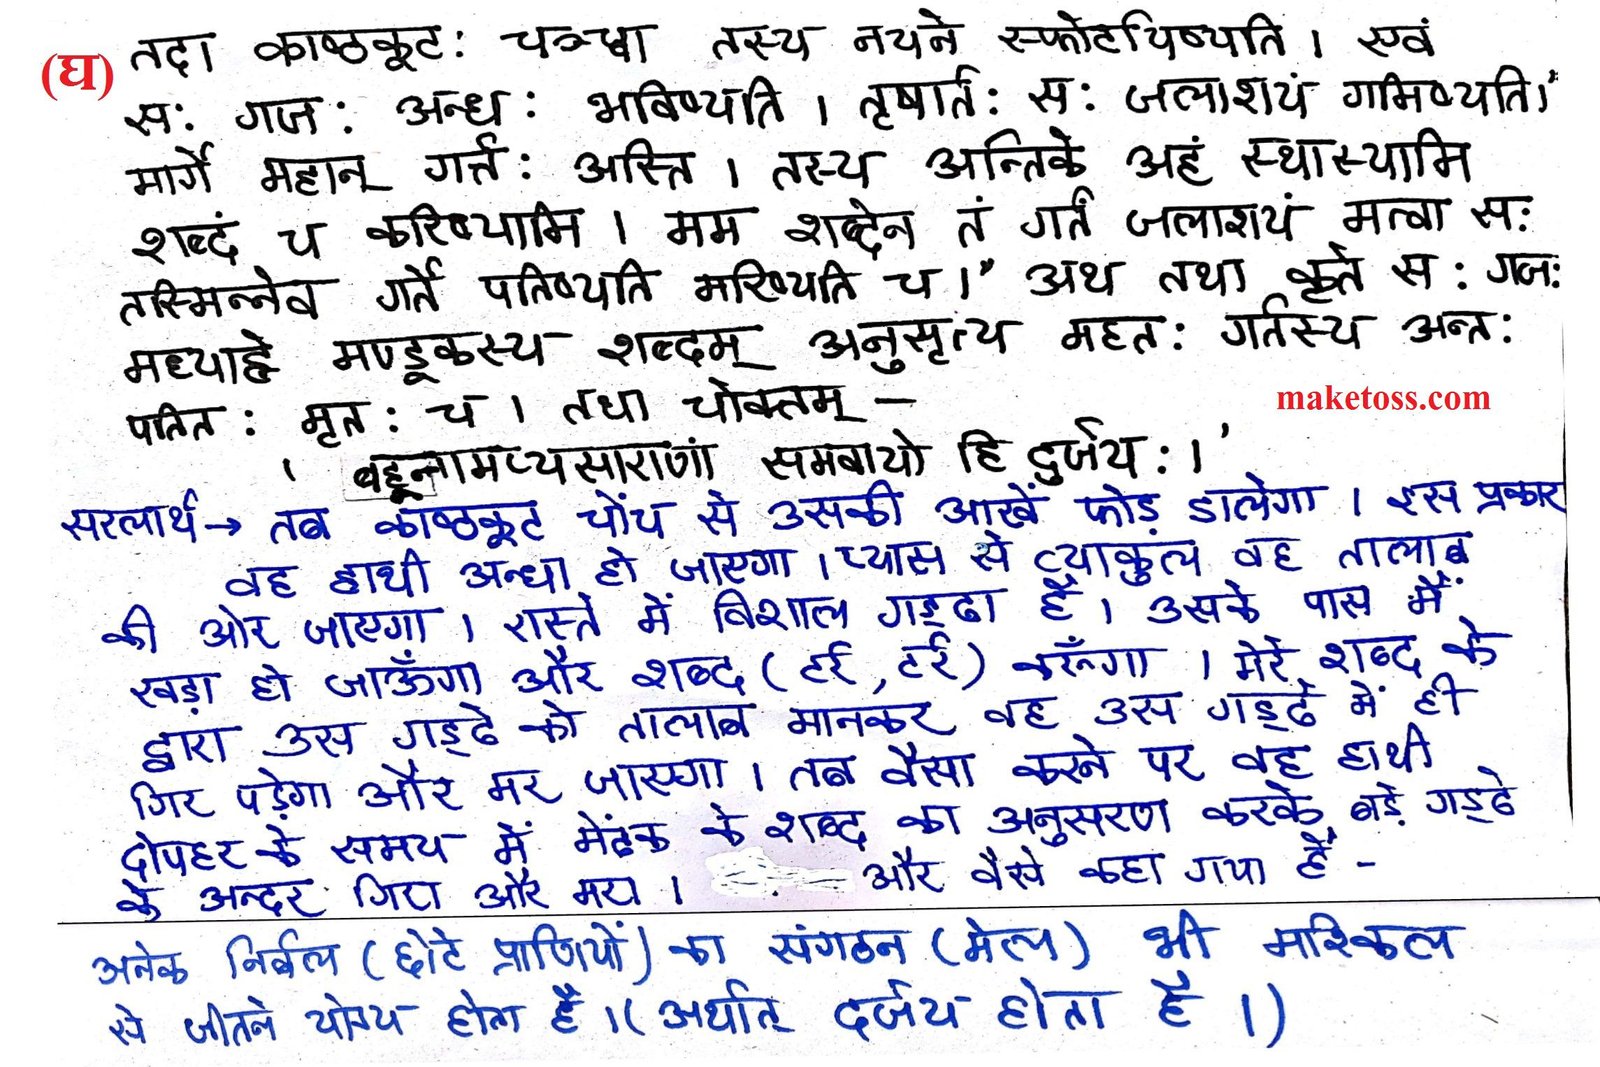 (घ) तदा काष्ठकूटः चञ्च्वा तस्य नयने स्फोटयिष्यति। एवं
सः गजः अन्धः भविष्यति। तृषार्तः सः जलाशयं गमिष्यति।"
मार्गे महान् गर्त्तः अस्ति। तस्य अन्तिके अहं स्थास्यामि
शब्दं च करिष्यामि। मम शब्देन तं गर्तं जलाशयं मत्वा सः
तस्मिन्नेव गर्ते पतिष्यति मरिष्यति च।" अथ तथा कृते सः गजः
मध्याह्ने मण्डूकस्य शब्दम् अनुसृत्य महतः गर्तस्य अन्तः
पतितः मृतः च। तथा चोक्तम् -
maketoss.com
। बहूनामप्यसाराणां समवायो हि दुर्जयः।'
सरलार्थ → तब काष्ठकूट चोंच से उसकी आखें फोड़ डालेगा। इस प्रकार
वह हाथी अन्धा हो जाएगा। प्यास से व्याकुल वह तालाब
की ओर जाएगा। रास्ते में विशाल गड्ढा है। उसके पास मैं
खड़ा हो जाऊँगा और शब्द (टर्र, टर्र) करूँगा। मेरे शब्द के
द्वारा उस गड्ढे को तालाब मानकर वह उस गड्ढे में ही
गिर पड़ेगा और मर जाएगा। तब वैसा करने पर वह हाथी
दोपहर के समय में मेंढक के शब्द का अनुसरण करके बड़े गड्ढे
के अन्दर गिरा और मरा। और वैसे कहा गया है -
अनेक निर्बल (छोटे प्राणियों) का संगठन (मेल) भी मश्किल
से जीतने योग्य होता है।(अर्थात् दर्जय होता है।)